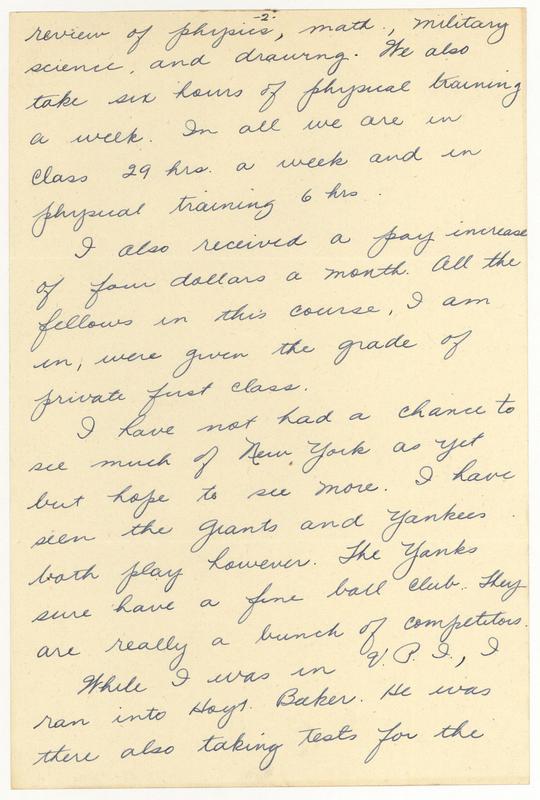 -2-
review of physics, math., military
science, and drawing. We also
take six hours of physical training
a week. In all we are in
class 29 hrs. a week and in
physical training 6 hrs.
I also received a pay increase
of four dollars a month. All the
fellows in this course, I am
in, were given the grade of
private first class.
I have not had a chance to
see much of New York as yet
but hope to see more. I have
seen the Giants and Yankees
both play however. The Yanks
sure have a fine ball club. They
are really a bunch of competitors.
While I was in V. P. I., I
ran into Hoyt Baker. He was
there also taking tests for the